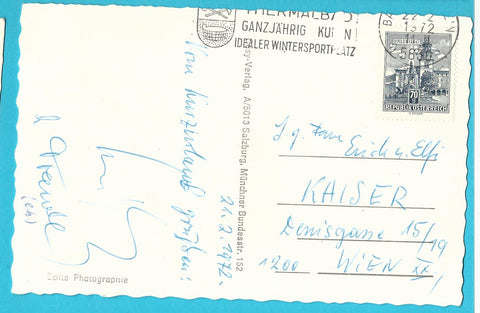 THERMALBAD
GANZJÄHRIG KUREN
IDEALER WINTERSPORTPLATZ
22-2
1972
70
REPUBLIK ÖSTERREICH
sy-Verlag, A/5013 Salzburg, Münchner Bundesstr. 152
Vom Kurzurlaub grüßen:
21. 2. 1972.
S. g. Fam
Erich u. Elfi
KAISER
Denisgasse 15/19
1200 WIEN XX,
Echte Photographie